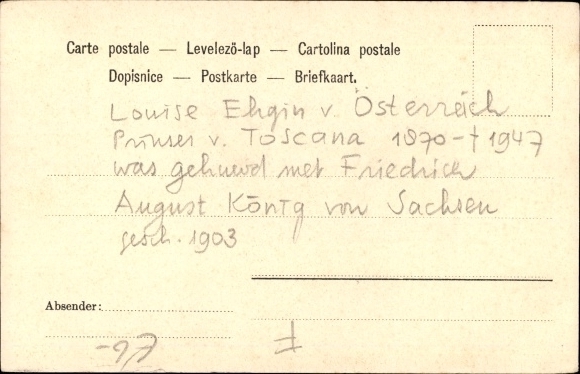 Carte postale — Levelező-lap — Cartolina postale
Dopisnice — Postkarte — Briefkaart.
Louise Ehgin v. Österreich
Prinses v. Toscana 1870 - † 1947
was gehuwd met Friedrich
August König von Sachsen
gesch. 1903
Absender: